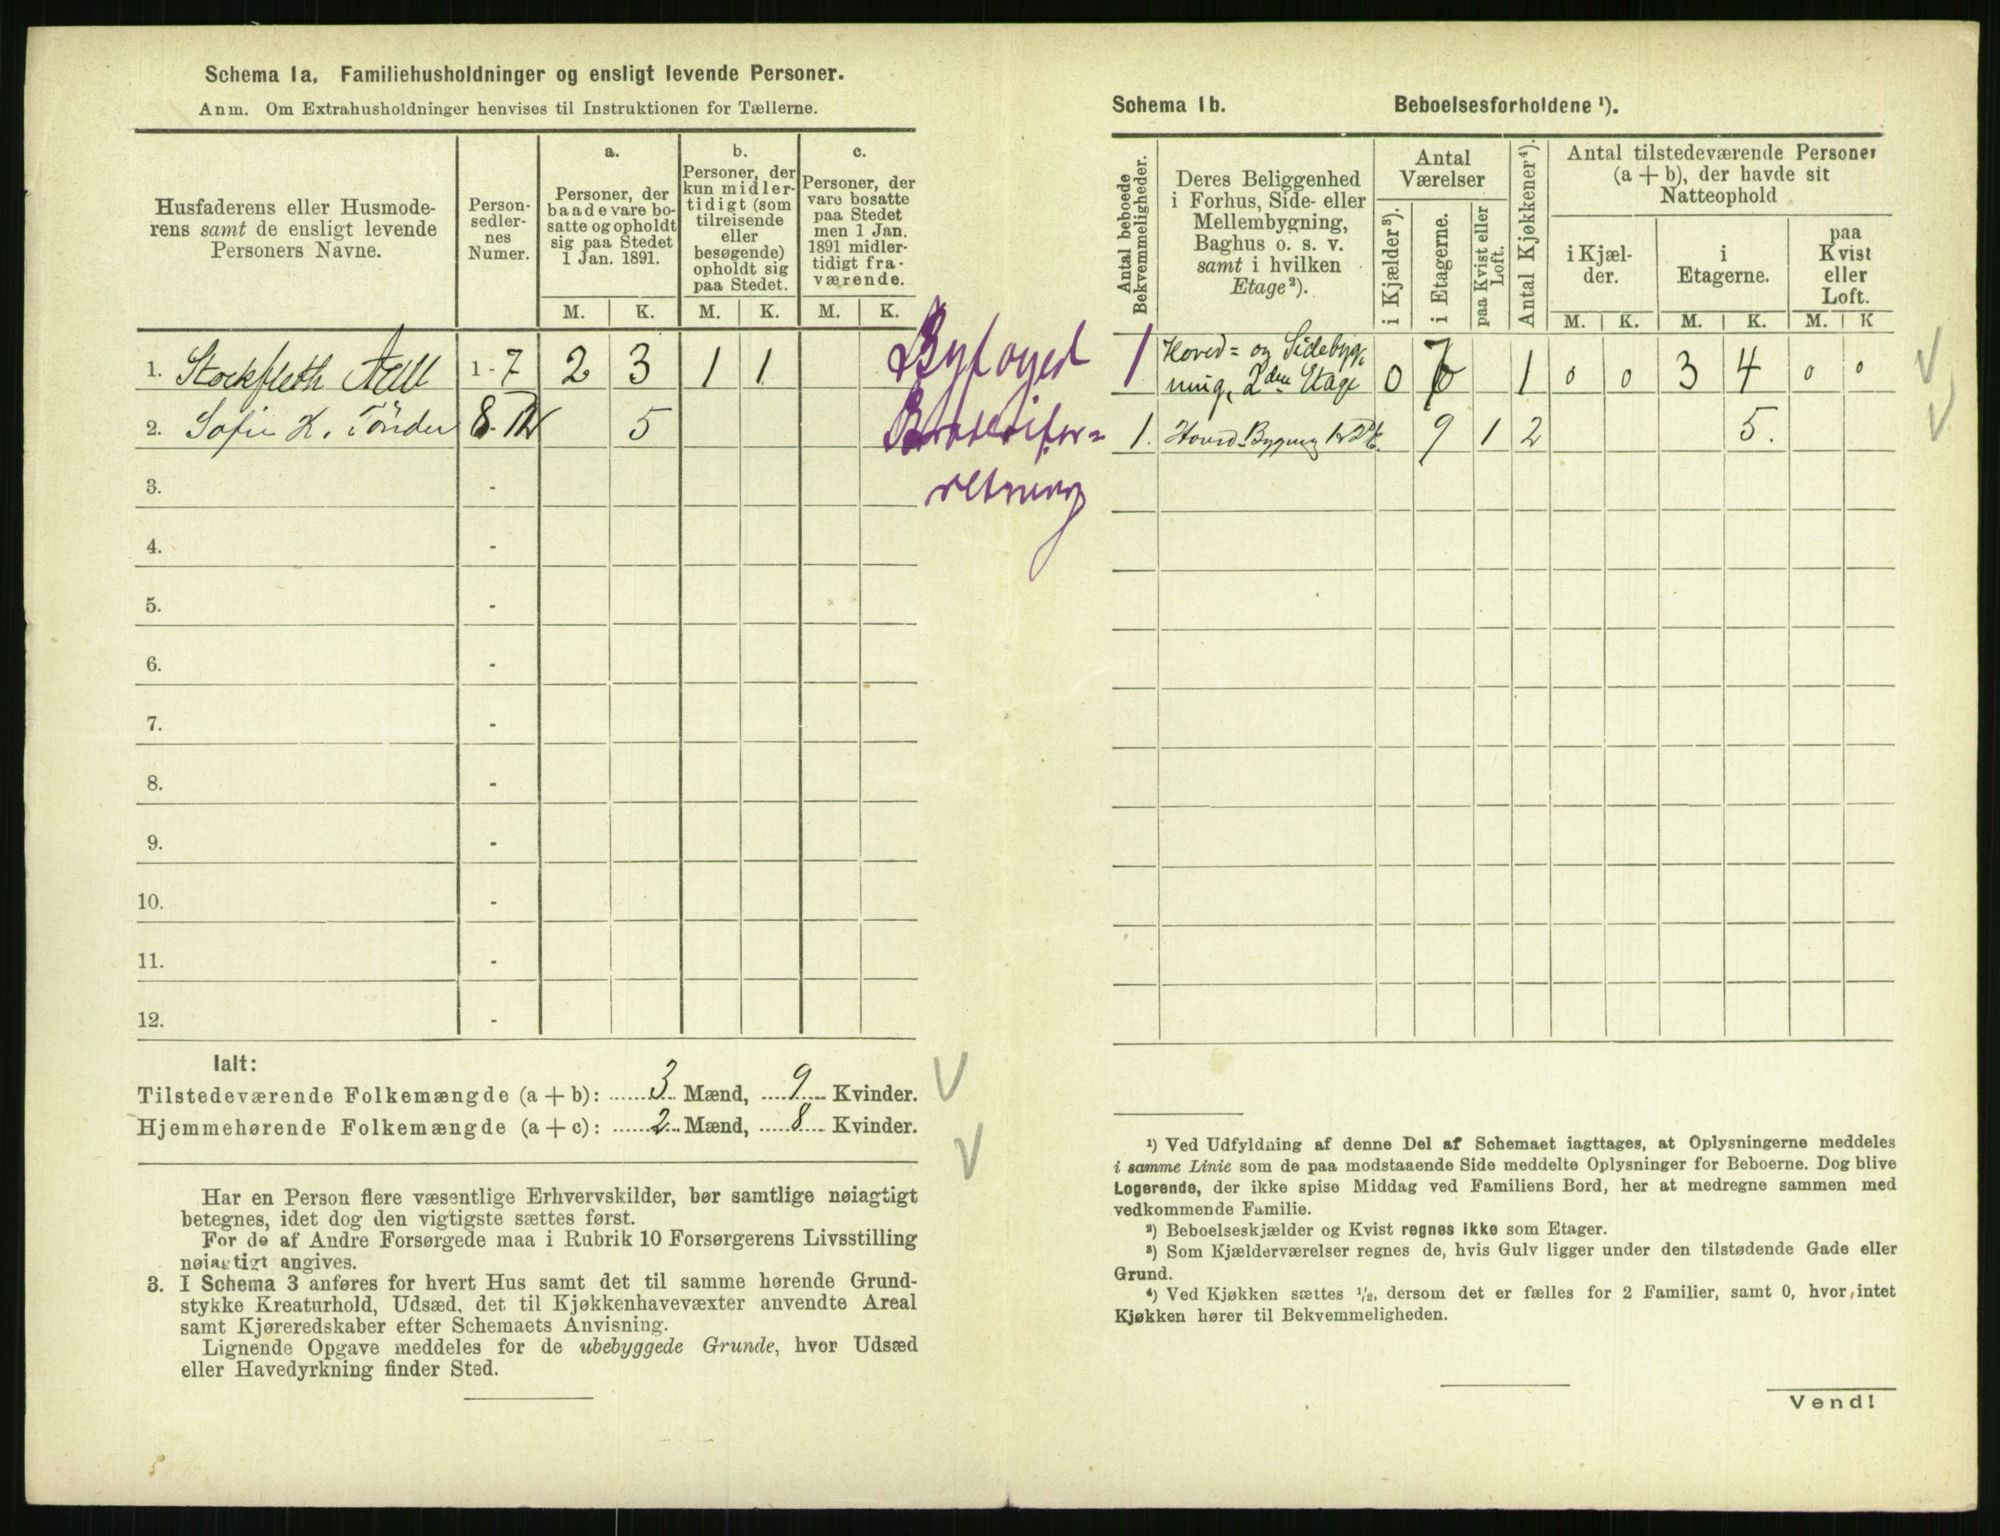 Schema 1a, Familiehusholdninger og ensligt levende Personer.
Anm. Om Extrahusholdninger henvises til Instruktionen for Tællerne.
Husfaderens eller Husmode-
rens samt de ensligt levende
Personers Navne.
Person-
sedler-
nes
Numer.
a.
Personer, der
baade vare bo-
satte og opholdt
sig paa Stedet
1 Jan. 1891.
b.
Personer, der
kun midler-
tidigt (som
tilreisende
eller
besøgende)
opholdt sig
paa Stedet.
c.
Personer, der
vare bosatte
paa Stedet
men 1 Jan.
1891 midler-
tidigt fra-
værende.
M. K. M. K. M. K.
1. Stockfleth Aall 1-7 2 3 1 1
2. Sofie K. Tönder 8-12 5
3. -
4. -
5. -
6. -
7. -
8. -
9. -
10. -
11. -
12. -
Ialt:
Tilstedeværende Folkemængde (a + b): 3 Mænd, 9 Kvinder.
Hjemmehørende Folkemængde (a + c): 2 Mænd, 8 Kvinder.
Har en Person flere væsentlige Erhvervskilder, bør samtlige nøiagtigt
betegnes, idet dog den vigtigste sættes først.
For de af Andre Forsørgede maa i Rubrik 10 Forsørgerens Livsstilling
nøiagtigt angives.
3. I Schema 3 anføres for hvert Hus samt det til samme hørende Grund-
stykke Kreaturhold, Udsæd, det til Kjøkkenhavevæxter anvendte Areal
samt Kjøreredskaber efter Schemaets Anvisning.
Lignende Opgave meddeles for de ubebyggede Grunde, hvor Udsæd
eller Havedyrkning finder Sted.
Byfoged
retning
Schema 1b. Beboelsesforholdene ¹).
Antal beboede
Bekvemmeligheder.
Deres Beliggenhed
i Forhus, Side- eller
Mellembygning,
Baghus o. s. v.
samt i hvilken
Etage²).
Antal
Værelser
i Kjælder³).
i Etagerne.
paa Kvist eller
Loft.
Antal Kjøkkener⁴).
Antal tilstedeværende Personer
(a + b), der havde sit
Natteophold
i Kjæl-
der.
i
Etagerne.
paa
Kvist
eller
Loft.
M. K. M. K. M. K
1 Hoved= og Sidebyg-
ning, 2den Etage 0 7 1 0 0 3 4 0 0
1. Hoved-Bygning 9 1 2 5.
¹) Ved Udfyldning af denne Del af Schemaet iagttages, at Oplysningerne meddeles
i samme Linie som de paa modstaaende Side meddelte Oplysninger for Beboerne. Dog blive
Logerende, der ikke spise Middag ved Familiens Bord, her at medregne sammen med
vedkommende Familie.
²) Beboelseskjælder og Kvist regnes ikke som Etager.
³) Som Kjælderværelser regnes de, hvis Gulv ligger under den tilstødende Gade eller
Grund.
⁴) Ved Kjøkken sættes ½, dersom det er fælles for 2 Familier, samt 0, hvor intet
Kjøkken hører til Bekvemmeligheden.
Vend!